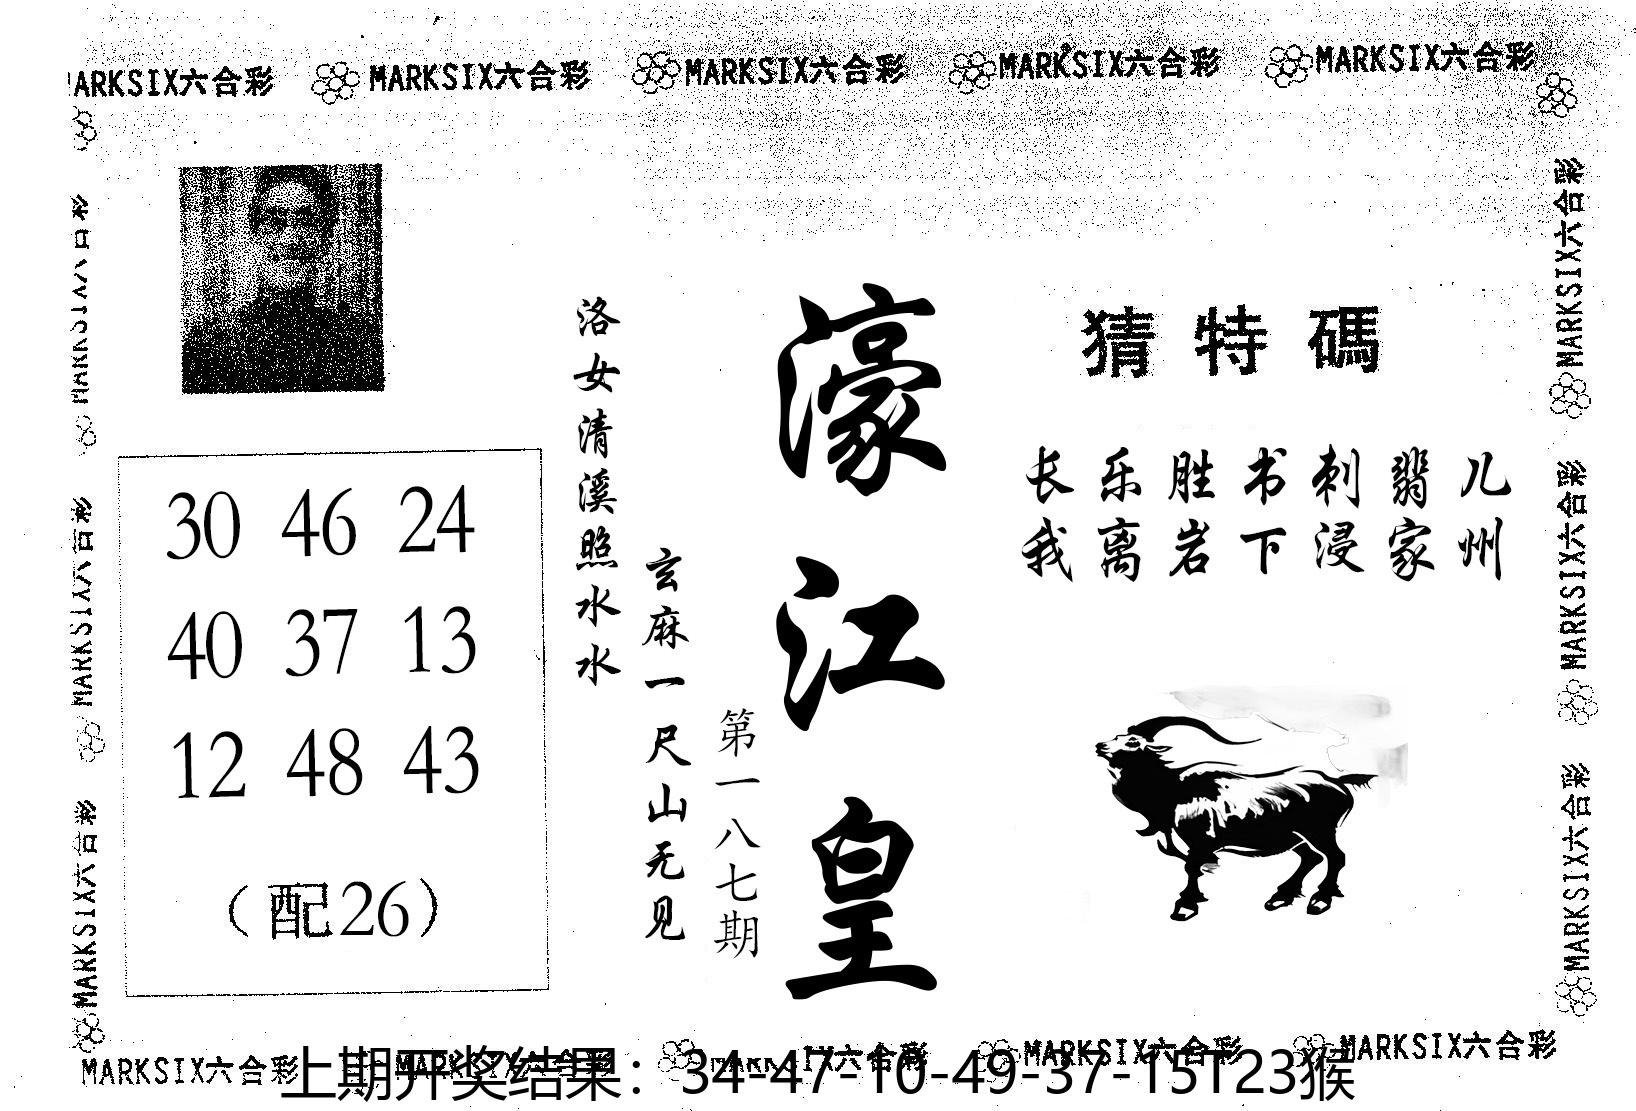 MARKSIX六合彩 MARKSIX六合彩 MARKSIX六合彩 MARKSIX六合彩 MARKSIX六合彩
猜特碼
长乐胜书刺翡儿
我离岩下浸家州
濠江皇
第一八七期
玄麻一尺山无见
洛女清溪照水水
30 46 24
40 37 13
12 48 43
(配26)
MARKSIX六合彩
MARKSIX六合彩
MARKSIX六合彩
MARKSIX六合彩
MARKSIX六合彩
MARKSIX六合彩
MARKSIX六合彩 MARKSIX六合彩 MARKSIX六合彩 MARKSIX六合彩 MARKSIX六合彩
上期开奖结果：34-47-10-49-37-15T23猴